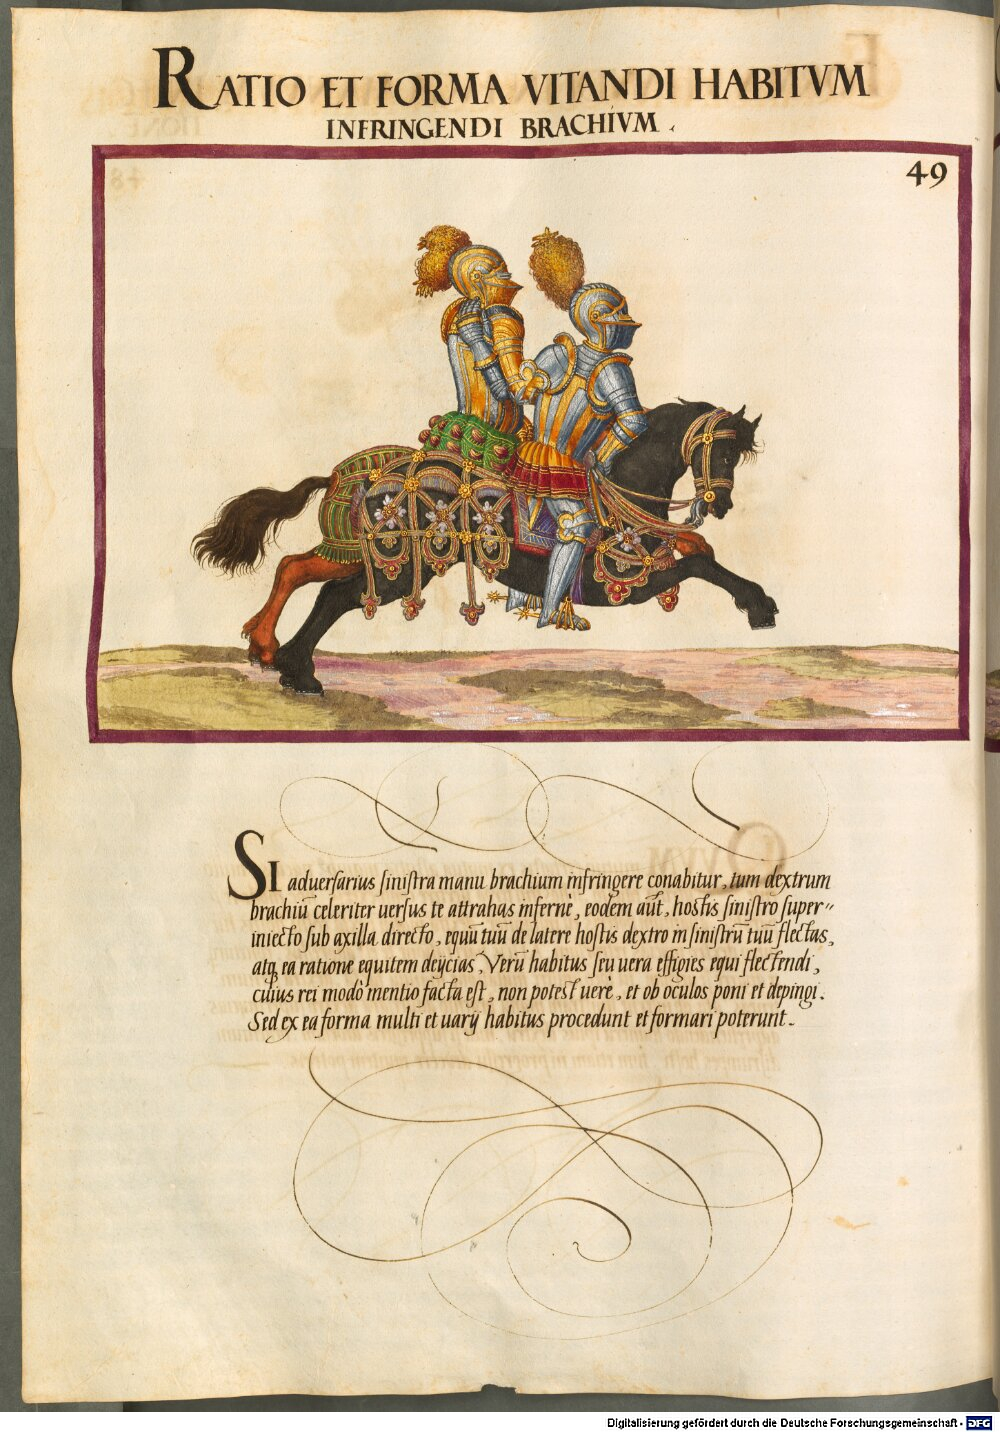 RATIO ET FORMA VITANDI HABITVM
INFRINGENDI BRACHIVM.
49
SI aduersarius sinistra manu brachium infringere conabitur, tum dextrum
brachiū celeriter uersus te attrahas infernè, eodem aūt, hostis sinistro super〃
iniecto sub axilla directo, equū tuū de latere hostis dextro in sinistrū tuū flectas,
atq ea ratione equitem deijcias. Verū habitus seu uera effigies equi flectendi,
cuius rei modò mentio facta est, non potest uerè, et ob oculos poni et depingi.
Sed ex ea forma multi et uarij habitus procedunt et formari poterunt.
Digitalisierung gefördert durch die Deutsche Forschungsgemeinschaft - DFG